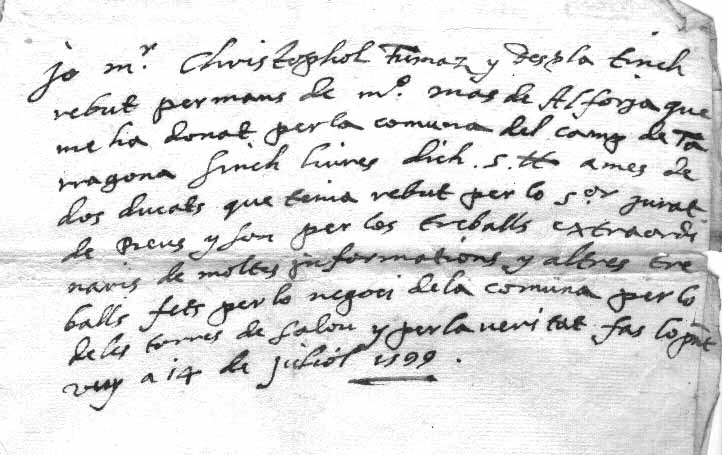 Jo mr Christophol Fumaz y Despla tinch
rebut per mans de mo. mas de Alforja que
me ha donat per la comuna del camp de Ta
rragona sinch liures dich .5. ℔ ames de
dos ducats que tenia rebut per lo sor jurat
de Reus y son per los treballs extraordi
naris de moltes informations y altres tre
balls fets per lo negoci dela comuna per lo
deles torres de Salou y per la veritat fas lo pnt
vuy a 14 de juliol 1599.